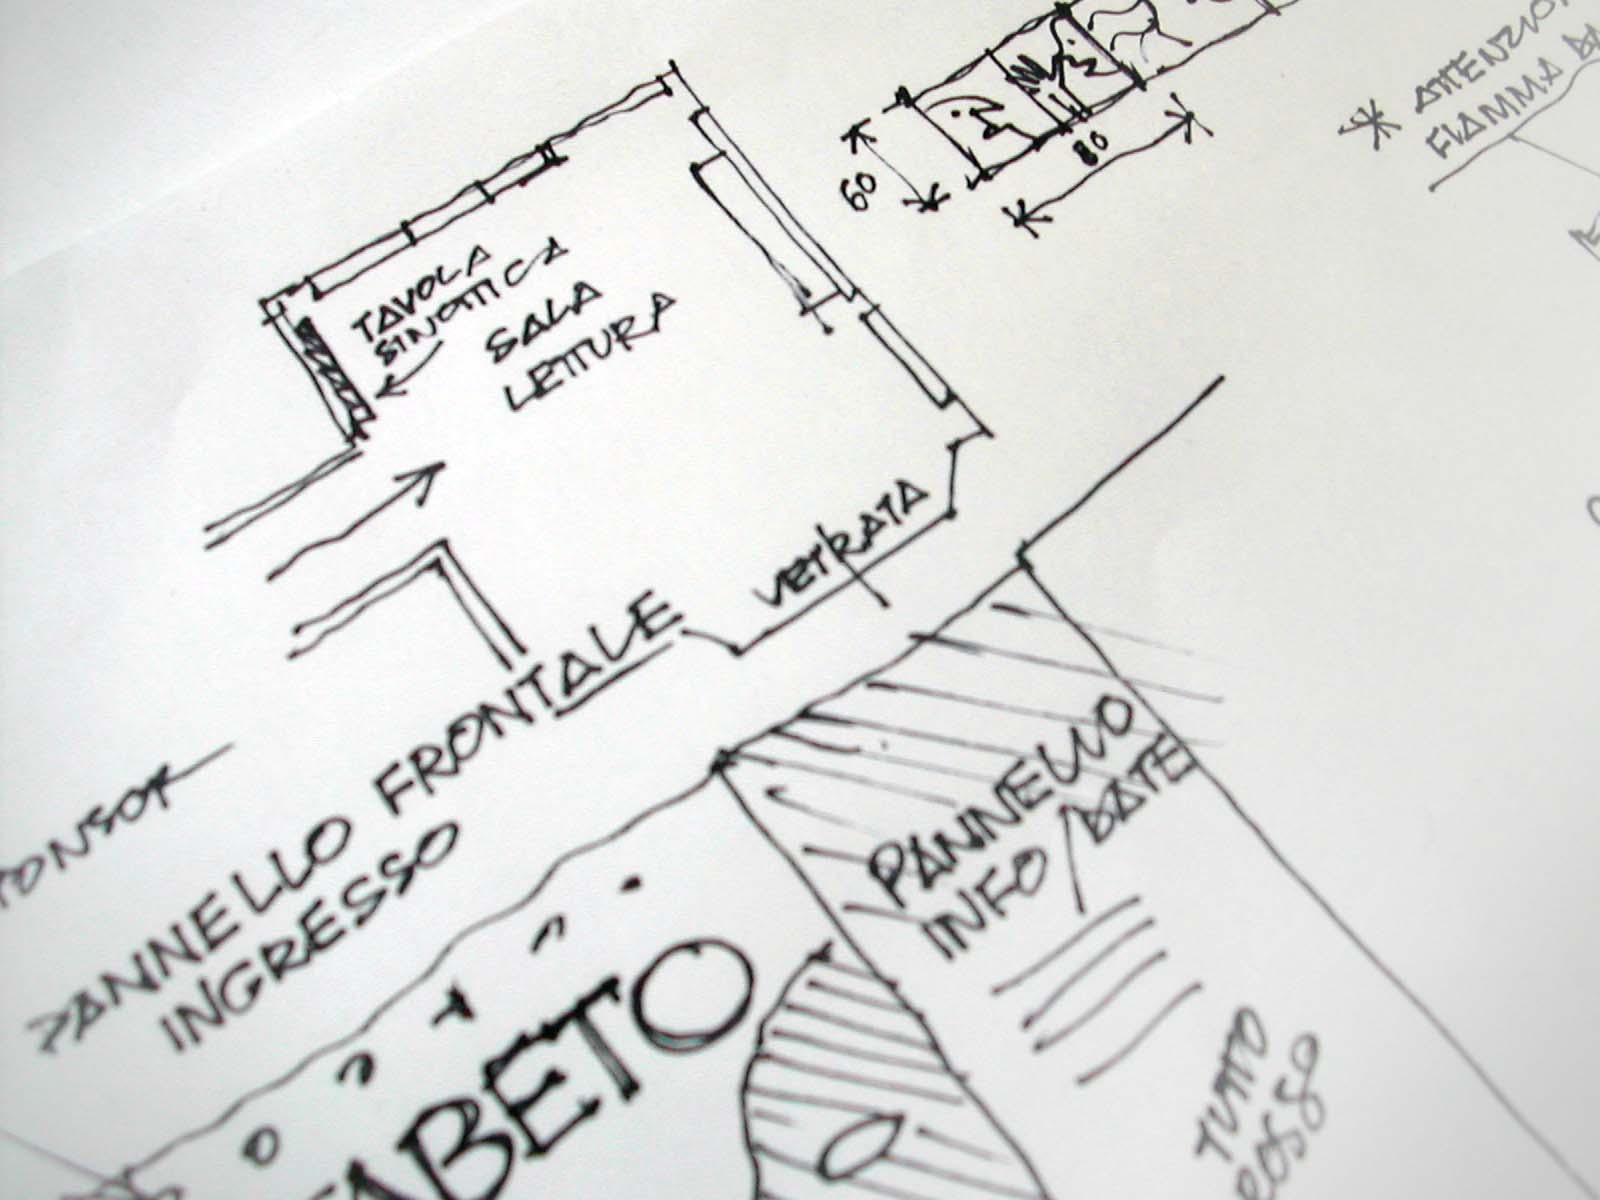 * ATTENZIO
FIAMMA DA
60
80
TAVOLA
SINOTTICA
SALA
LETTURA
VETRATA
PANNELLO FRONTALE
INGRESSO
PANNELLO
INFO/DATE
ABETO
TUTTO